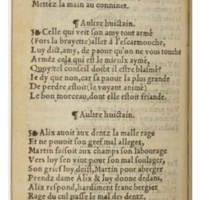 Mettez la main au conninet.
¶ Aultre huictain.
Celle qui veit son amy tout armé
(Fors la brayette) aller à l'escarmouche,
Luy dict, amy, de paour qu'on ne vous touche
Armez cela qui est le mieulx aymé,
Quoy, tel conseil doubt il estre blasmé?
Ie dy que non, car sa paour la plus grande
De perdre estoit (le voyant animé)
Le bon morceau, dont elle estoit friande.
¶ Aultre huictain.
Alix auoit aux dentz la malle rage
Et ne pouoit son grief mal alleger,
Martin faisoit aux champs son labourage
Vers luy s'en vint pour son mal soulager,
Son grief luy dist, Martin pour abreger
Prendz dame Alix & luy donne dedans,
Alix respond, hardiment franc bergier
Rage du cul passe le mal des dentz.